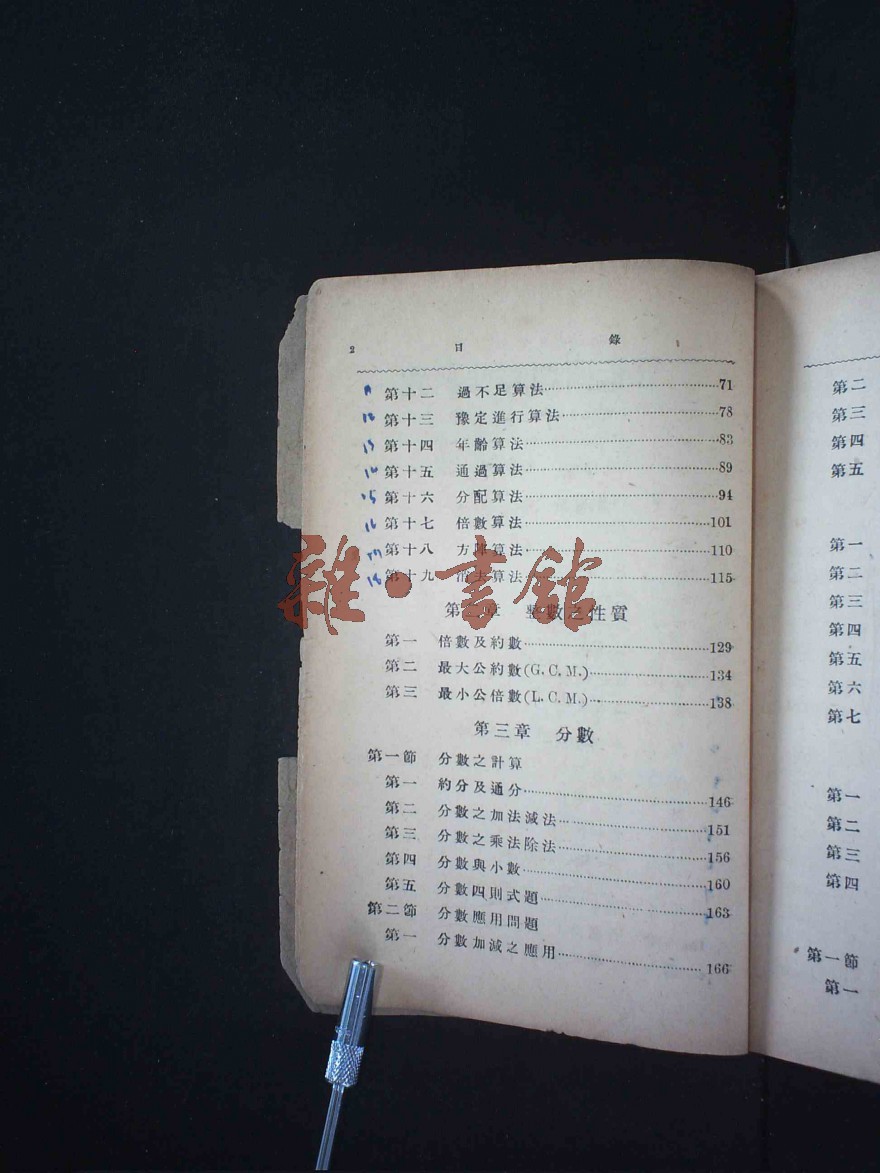 2 目 錄
11 第十二 過不足算法 71
12 第十三 豫定進行算法 78
13 第十四 年齡算法 83
14 第十五 通過算法 89
15 第十六 分配算法 94
16 第十七 倍數算法 101
17 第十八 方陣算法 110
18 第十九 消去算法 115
雜·書館
第二章 整數之性質
第一 倍數及約數 129
第二 最大公約數(G. C. M.) 134
第三 最小公倍數(L. C. M.) 138
第三章 分數
第一節 分數之計算
第一 約分及通分 146
第二 分數之加法減法 151
第三 分數之乘法除法 156
第四 分數與小數 160
第五 分數四則式題 163
第二節 分數應用問題
第一 分數加減之應用 166
第二
第三
第四
第五
第一
第二
第三
第四
第五
第六
第七
第一
第二
第三
第四
第一節
第一